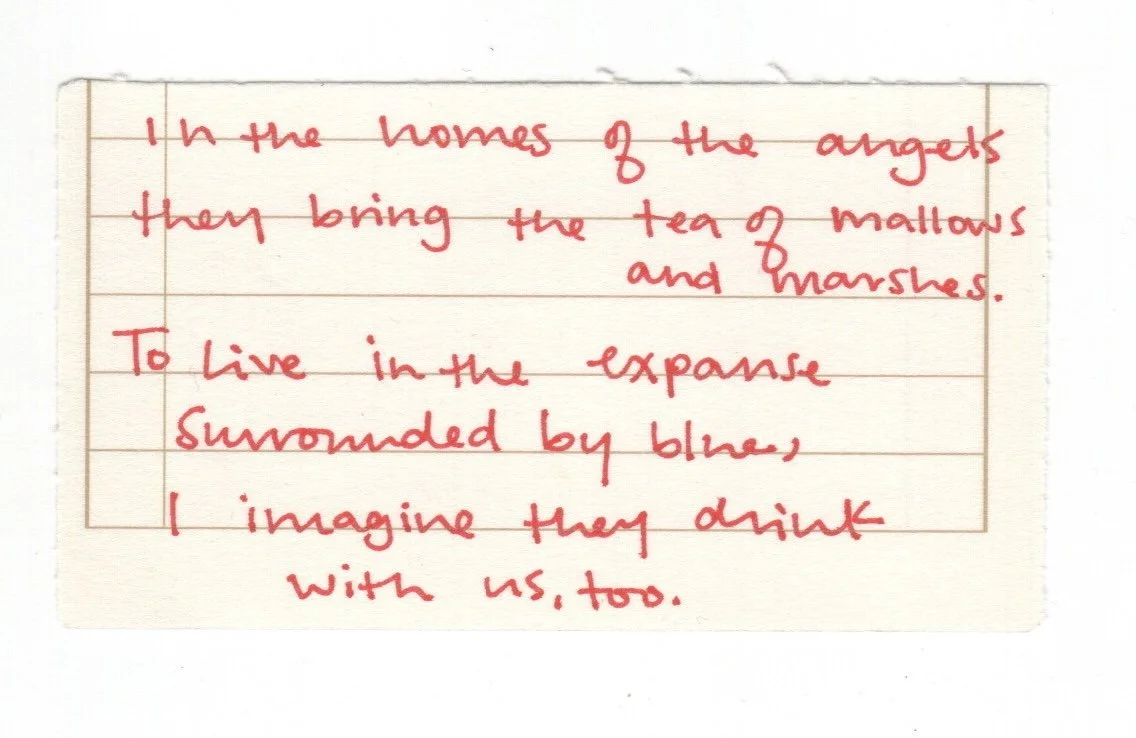 In the homes of the angels
they bring the tea of mallows
and marshes.
To live in the expanse
surrounded by blue,
I imagine they drink
with us, too.